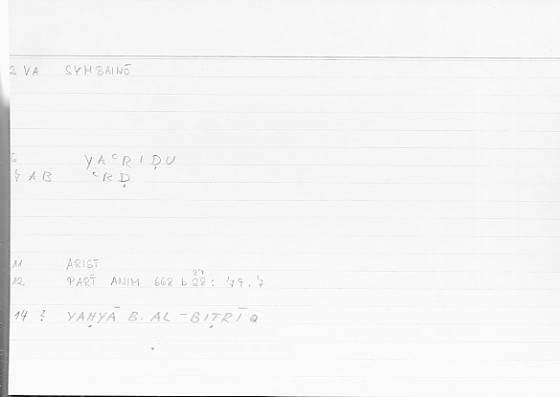 2 VA SYMBAINŌ
6 YAʿRIḌU
7 AB ʿRḌ
11 ARIST
27
12 PART ANIM 668 b 28 : 79.7
14 ? YAḤYĀ B. AL-BIṬRĪQ